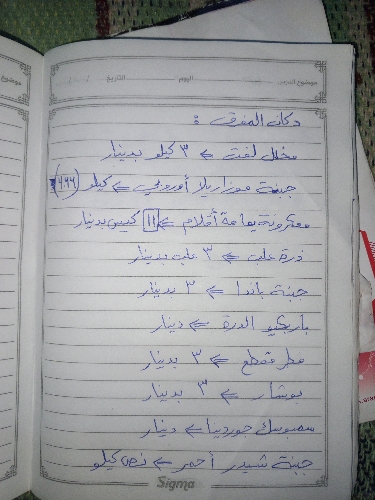 موضوع الدرس: اليوم: التاريخ:
دكان المفرق :
مخلل لفت ← ٣ كيلو بدينار
جبنة موزاريلا أوروبي ← كيلو (٢,٩٩)
معكرونة أقلام ← 11 كيس بدينار
ذرة علب ← ٣ علب بدينار
جبنة باندا ← ٣ بدينار
باربكيو الدرة ← دينار
← ٣ بدينار
بوشار ← ٣ بدينار
سمبوسك ← دينار
جبنة شيدر أحمر ← نص كيلو
Sigma